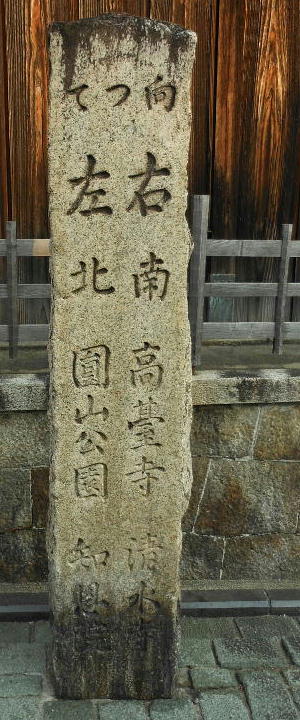 向つて
右 南 高臺寺 清水寺
左 北 圓山公園 知恩院